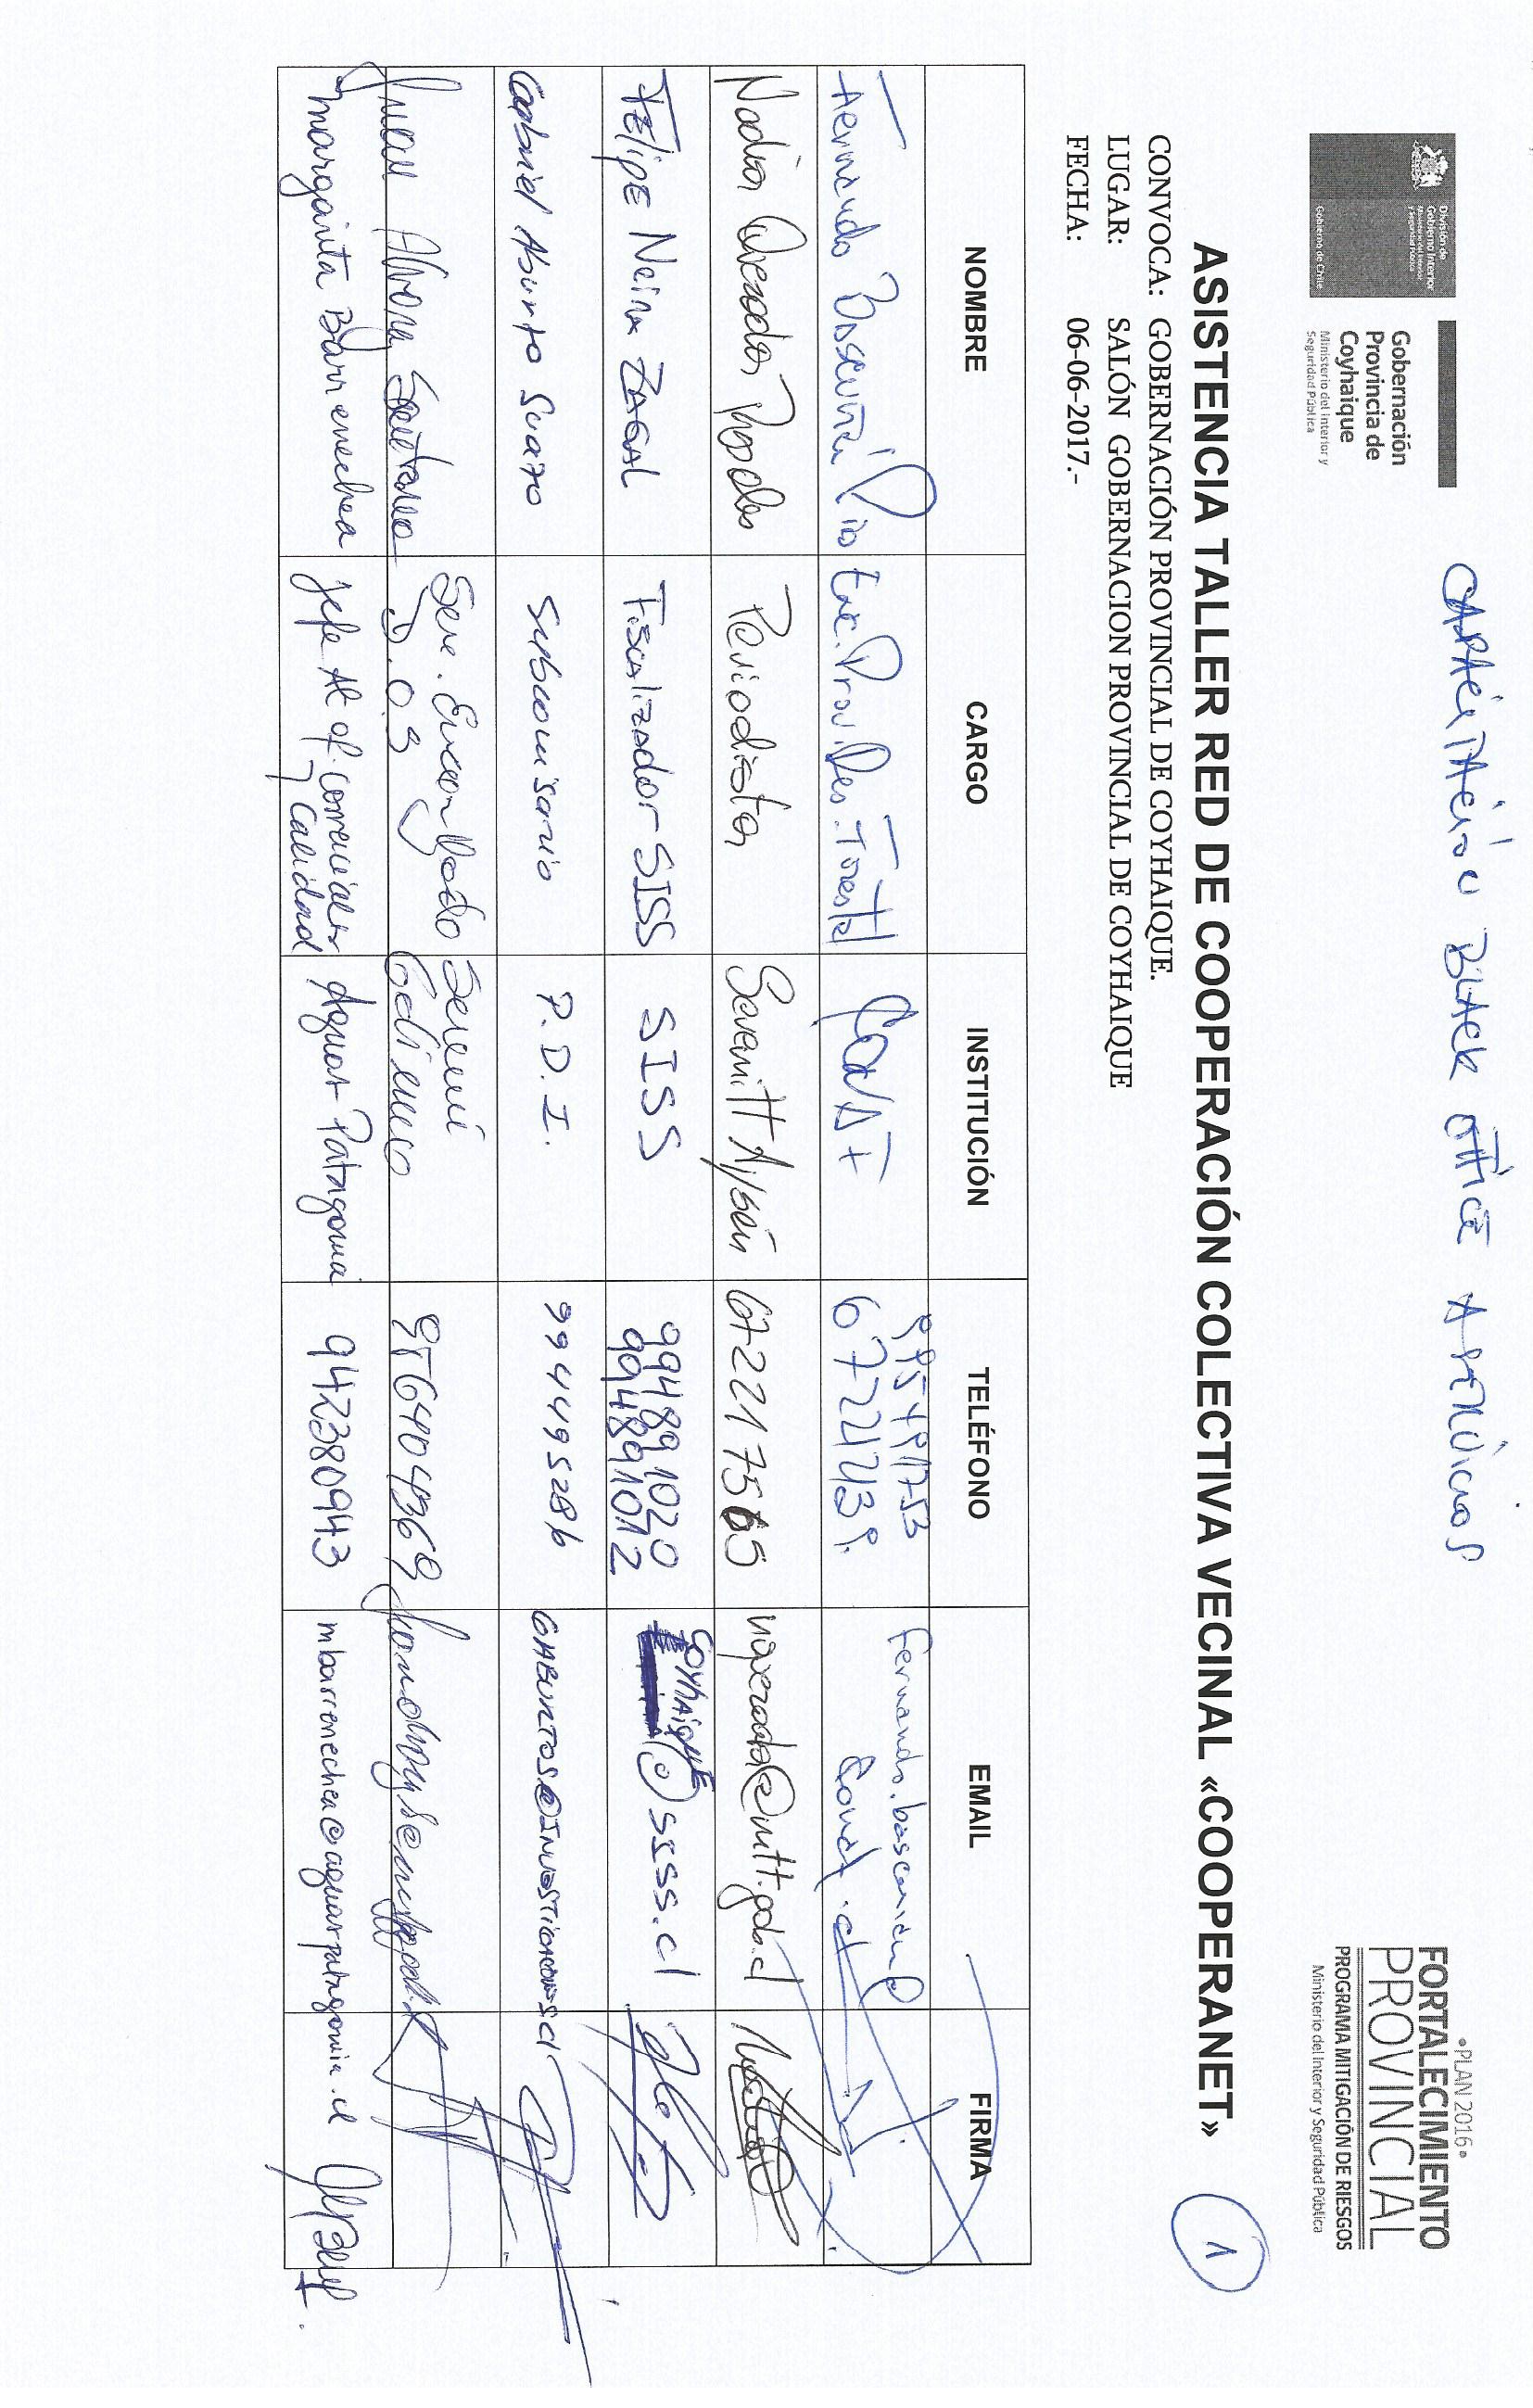 CAPACITACIÓN BLACK OFFICE A SERVICIOS
División de
Gobierno Interior
Ministerio del Interior
y Seguridad Pública
Gobierno de Chile
Gobernación
Provincia de
Coyhaique
Ministerio del Interior y
Seguridad Pública
•PLAN 2016•
FORTALECIMIENTO
PROVINCIAL
PROGRAMA MITIGACIÓN DE RIESGOS
Ministerio del Interior y Seguridad Pública
ASISTENCIA TALLER RED DE COOPERACIÓN COLECTIVA VECINAL «COOPERANET»
1
CONVOCA: GOBERNACIÓN PROVINCIAL DE COYHAIQUE.
LUGAR: SALÓN GOBERNACION PROVINCIAL DE COYHAIQUE
FECHA: 06-06-2017.-
NOMBRE CARGO INSTITUCIÓN TELÉFONO EMAIL FIRMA
Fernando Bascuñá Enc. Prov. Des. Forestal CONAF
conaf.cl
Nadia Quezada Periodista Seremitt Aysén 672217565 nquezada@mtt.gob.cl
Felipe Neira ZAGAL Fiscalizador SISS SISS 994891020 COYHAIQUE@SISS.cl
994891012
Gabriel Aburto Suazo Subcomisario P.D.I. 994495286 GABURTOS@INVESTIGACIONES.cl
Juan Seremi
D.O.S Gobierno
Margarita Barrenechea Jefe At of. comerciales Aguas Patagonia 942380943 mbarrenechea@aguaspatagonia.cl
y Calidad